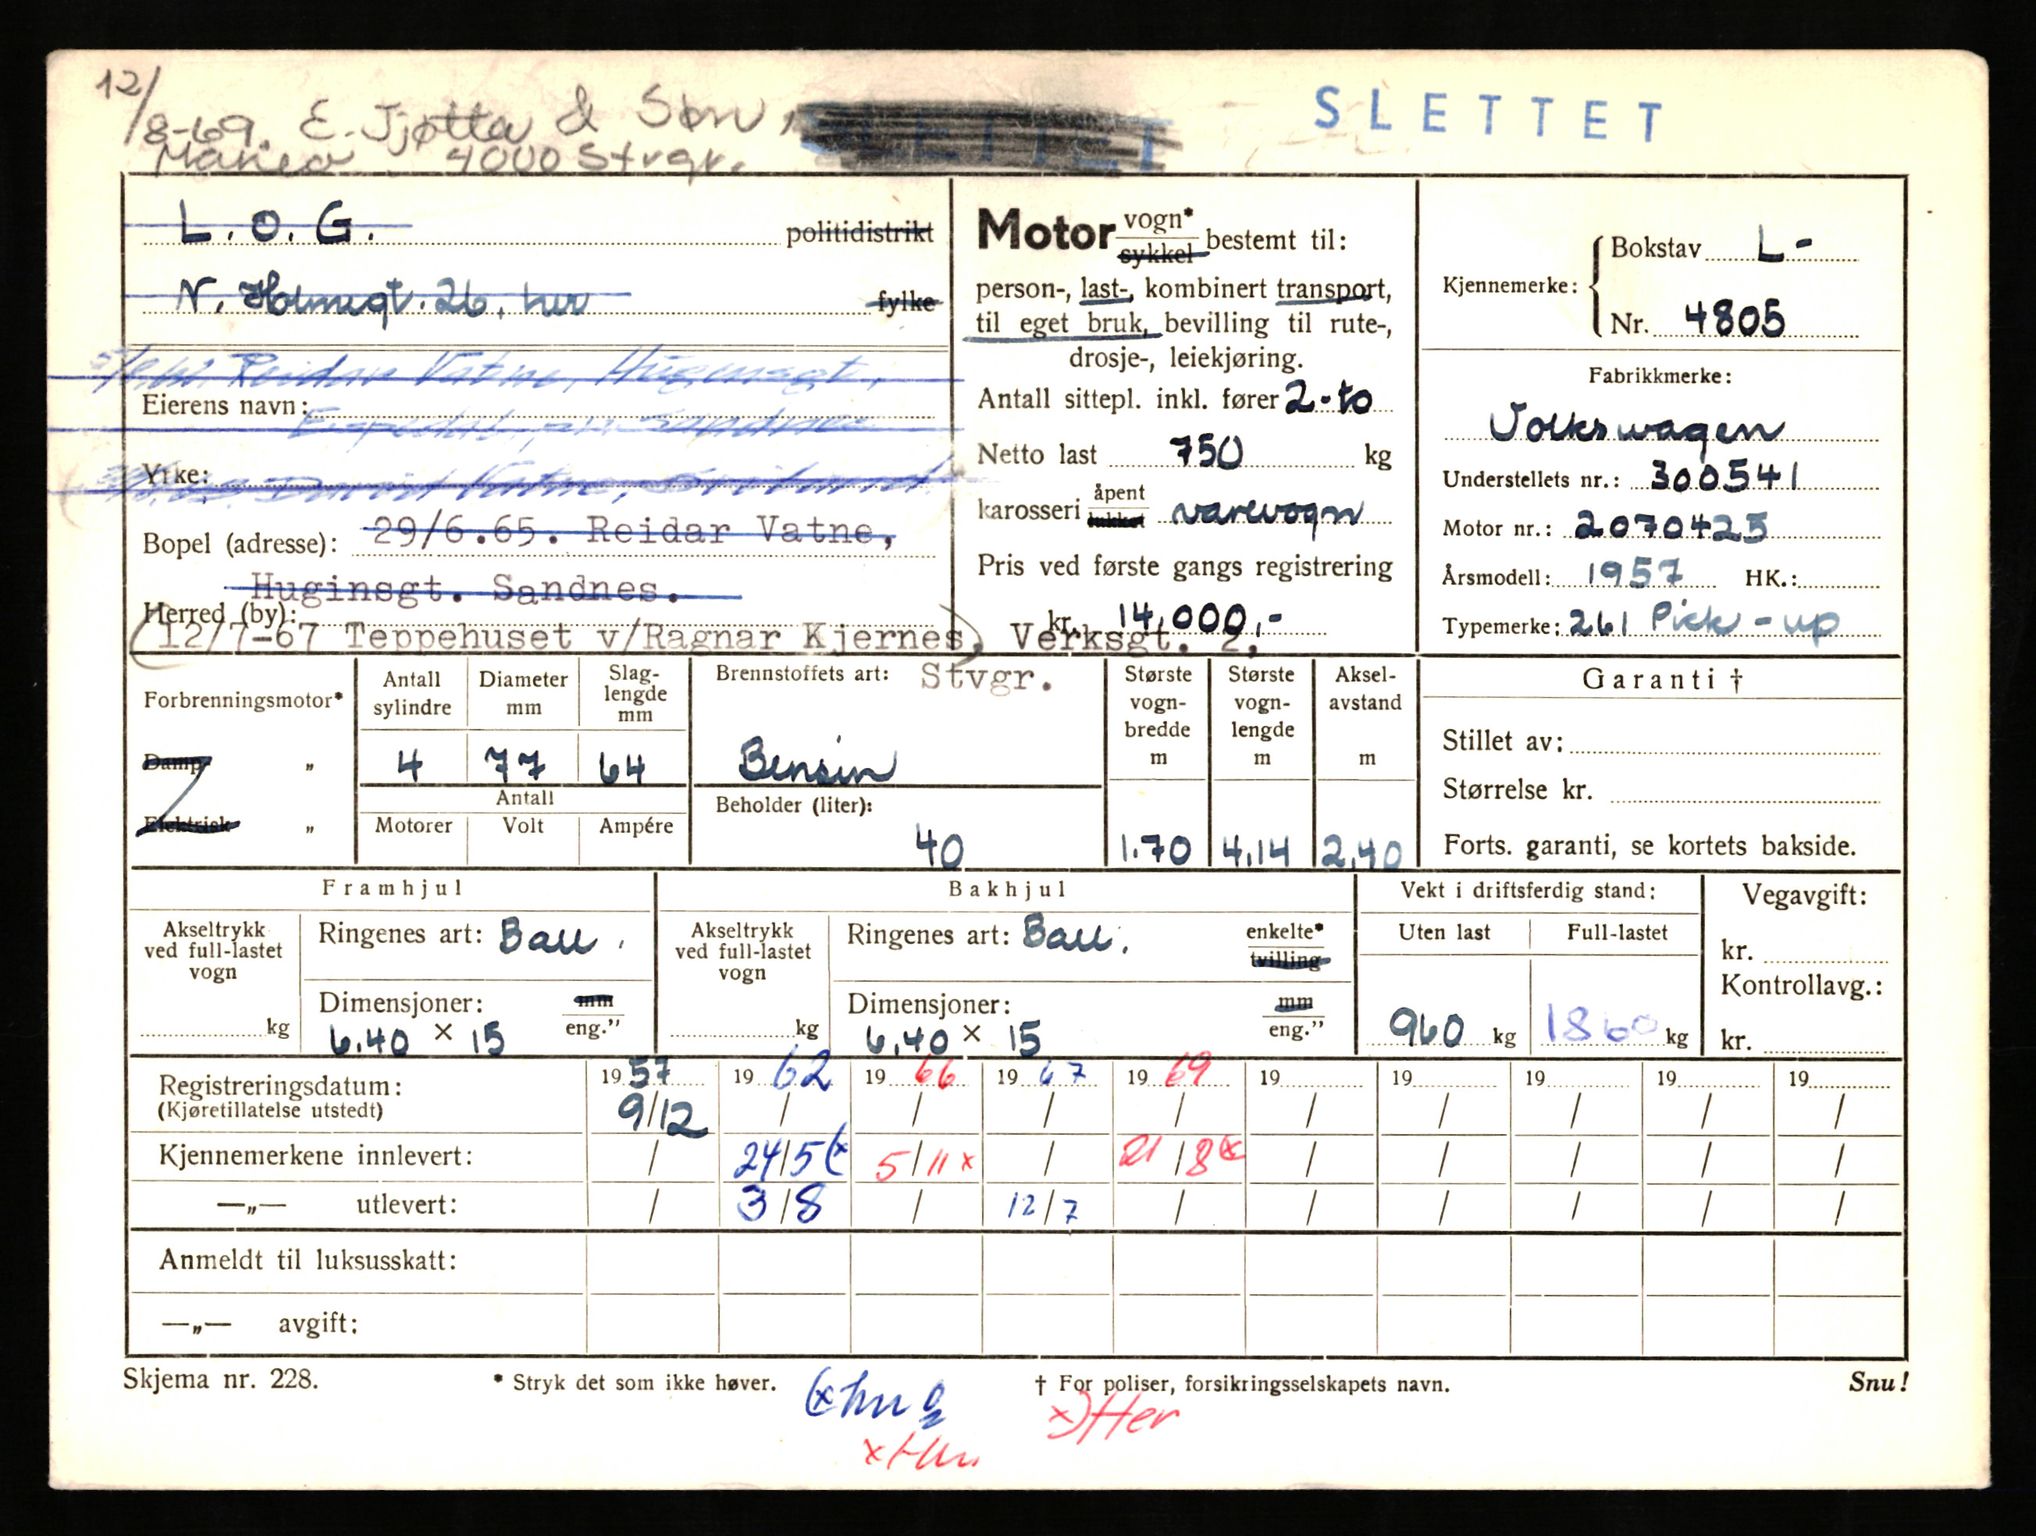 12/8-69. E. Tjøtta & Søn,
SLETTET
SLETTET
4000 Stvgr.
L. O. G. politidistrikt
N. Holmegt. 26, her fylke
Reidar Vatne, Huginsgt.,
Eierens navn:
Sandnes
Yrke: David Vatne,
Bopel (adresse): 29/6.65. Reidar Vatne,
Huginsgt. Sandnes.
Herred (by):
(12/7-67 Teppehuset v/Ragnar Kjernes) Verksgt. 2,
Stvgr.
Motor vogn* sykkel bestemt til:
person-, last-, kombinert transport,
til eget bruk, bevilling til rute-,
drosje-, leiekjøring.
Antall sittepl. inkl. fører 2-to
Netto last 750 kg
karosseri åpent lukket varevogn
Pris ved første gangs registrering
kr. 14.000,-
Kjennemerke: Bokstav L-
Nr. 4805
Fabrikkmerke:
Volkswagen
Understellets nr.: 300541
Motor nr.: 2070425
Årsmodell: 1957 HK.:
Typemerke: 261 Pick-up
Forbrenningsmotor*
Damp „
Elektrisk „
Antall sylindre Diameter mm Slag-lengde mm
4 77 64
Antall
Motorer Volt Ampére
Brennstoffets art:
Bensin
Beholder (liter):
40
Største vogn-bredde m Største vogn-lengde m Aksel-avstand m
1.70 4.14 2.40
Garanti †
Stillet av:
Størrelse kr.
Forts. garanti, se kortets bakside.
Framhjul
Akseltrykk ved full-lastet vogn
kg
Ringenes art: Ball.
Dimensjoner: mm eng.”
6.40 × 15
Bakhjul
Akseltrykk ved full-lastet vogn
kg
Ringenes art: Ball. enkelte* tvilling
Dimensjoner: mm eng.”
6.40 × 15
Vekt i driftsferdig stand:
Uten last Full-lastet
960 kg 1860 kg
Vegavgift:
kr.
Kontrollavg.:
kr.
Registreringsdatum: 1957 1962 1966 1967 1969 19 19 19 19 19
(Kjøretillatelse utstedt) 9/12 / / / / / / / / /
Kjennemerkene innlevert: / 24/5 (x 5/11 x / 21/8 (x / / / / /
—„— utlevert: / 3/8 / 12/7 / / / / / /
Anmeldt til luksusskatt:
—„— avgift:
Skjema nr. 228. * Stryk det som ikke høver. † For poliser, forsikringsselskapets navn. Snu!